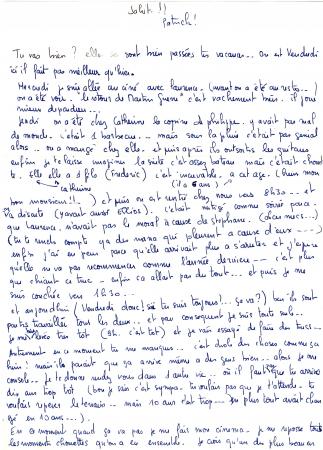 Salut !!
Patrick !
Tu vas bien ? elle se sont bien passées tes vacances... on est Vendredi
ici il fait pas meilleur qu'hier.
Mercredi je suis allée au ciné avec Laurence. (avant on a été au resto...)
on a été voir "le retour de Martin Guerre" c'est vachement bien. il joue
mieux depardieu...
jeudi on a été chez Catherine la copine de philippe. y avait pas mal
de monde. c'était 1 barbecue... mais sous la pluie c'était pas génial
alors.. on a mangé chez elle. et puis après ils ont sorti les guitares
enfin je te laisse imaginer la suite c'est assez bateau mais c'était chouet
te. elle elle a 1 fils (Frédéric) c'est incroyable. a cet age. (hum mon
Catherine (il a 6 ans)
bon monsieur !!..) et puis on est rentré chez nous vers 8h30 -- et
la discute (y avait aussi Gilles). c'était mitigé comme soirée parce
que Laurence n'avait pas le moral à cause de Stephane. (chum mecs...)
(tu te rends compte ya des nanas qui pleurent a cause d'eux ---)
enfin j'ai eu peur parce qu'elle arrivait plus a s'arreter et j'espère
qu'elle va pas recommencer comme l'année dernière -- c'est plus
que chiant ce truc - enfin ca allait pas du tout... et puis je me
suis couchée vers 1h30...
et aujourd'hui (Vendredi donc! sei tu suis toujours!.. ça va?) ben ils sont
partis travailler tous les deux.. et par consequent je suis toute seule..
je me suis levée très tôt (9h. c'est tôt) et je vais essayer de faire des trucs...
Autrement en ce moment tu me manques -- c'est drole des choses comme ça
hein! mais ils parait que ça arrive même a des gens bien.. alors je me
console.. Je te donne rendez vous dans 1 autre vie... où il faut que tu arrives
dix ans trop tôt (bon je sais c'est sympa. tu voulais pas que je t'attende. tu
voulais repérer le terrain.. mais 10 ans c'est trop --- en plus tout avait chan
gé en 10 ans...)
En ce moment quand ça va pas je me fais mon cinema. Je me repasse tous
les moments chouettes qu'on a eu ensemble. Je crois qu'un des plus beaux